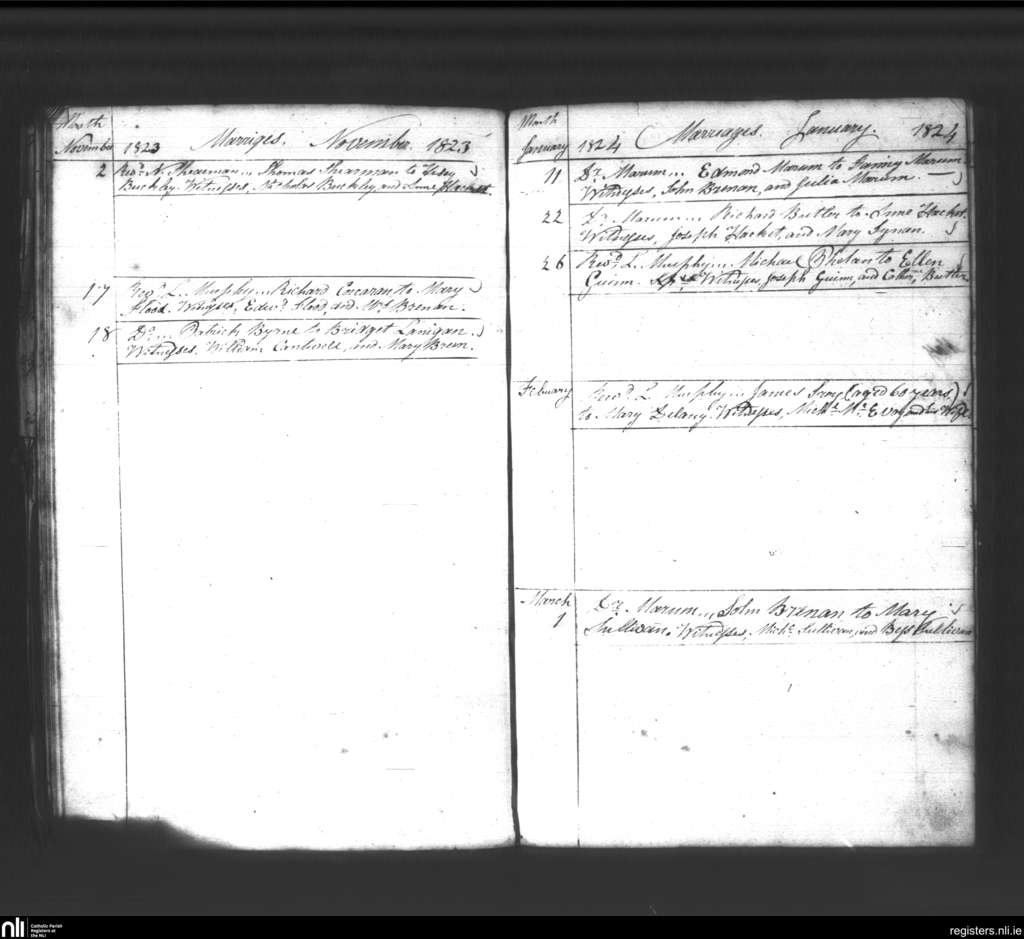 Month
November 1823 Marriges. November 1823
2 Revd. N. Shearman... Thomas Shearman to
Buckley. Witnesses, Nicholas Buckley, and Anne Hacket
17 Revd. L. Murphy... Richard Corcoran to Mary
Flood. Witnesses, Edwd. Flood, and Brenan.
18 Do... Patrick Byrne to Bridget Lanigan.
Witnesses, William Cantwell, and Mary Breen.
Month
January 1824 Marriages. January. 1824
11 Dr. Marum... Edmond Marum to Marum.
Witnesses, John Brenan, and Julia Marum.
22 Dr. Marum... Richard Butler to Anne Hacket.
Witnesses, Joseph Hacket, and Mary Synan.
26 Revd. L. Murphy... Michael Phelan to Ellen
Guinn. Witnesses, Joseph Guinn, and Butler
February Revd. L. Murphy... James (aged 60 years)
to Mary Delany. Witnesses, Michl. and his Wife
March Dr. Marum... John Brenan to Mary
1 Sullivan. Witnesses, Michl. Sullivan, and Bess Sullivan
nli Catholic Parish
Registers at
the NLI
registers.nli.ie